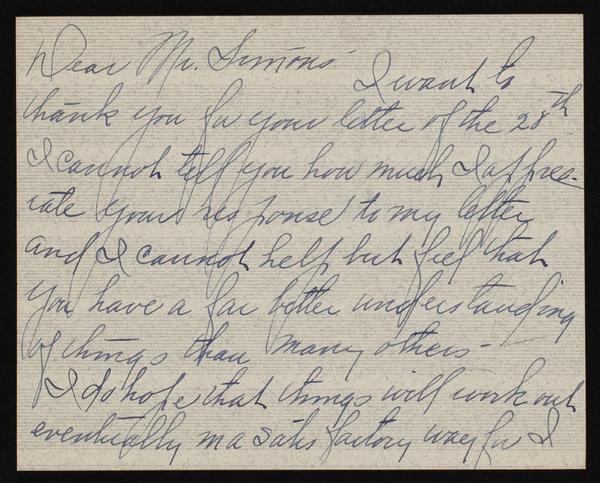 Dear Mr. Simons
I want to
thank you for your letter of the 28th
I cannot tell you how much I apprec-
iate your response to my letter
and I cannot help but feel that
you have a far better understanding
of things than many others -
I do hope that things will work out
eventually in a satisfactory way for I